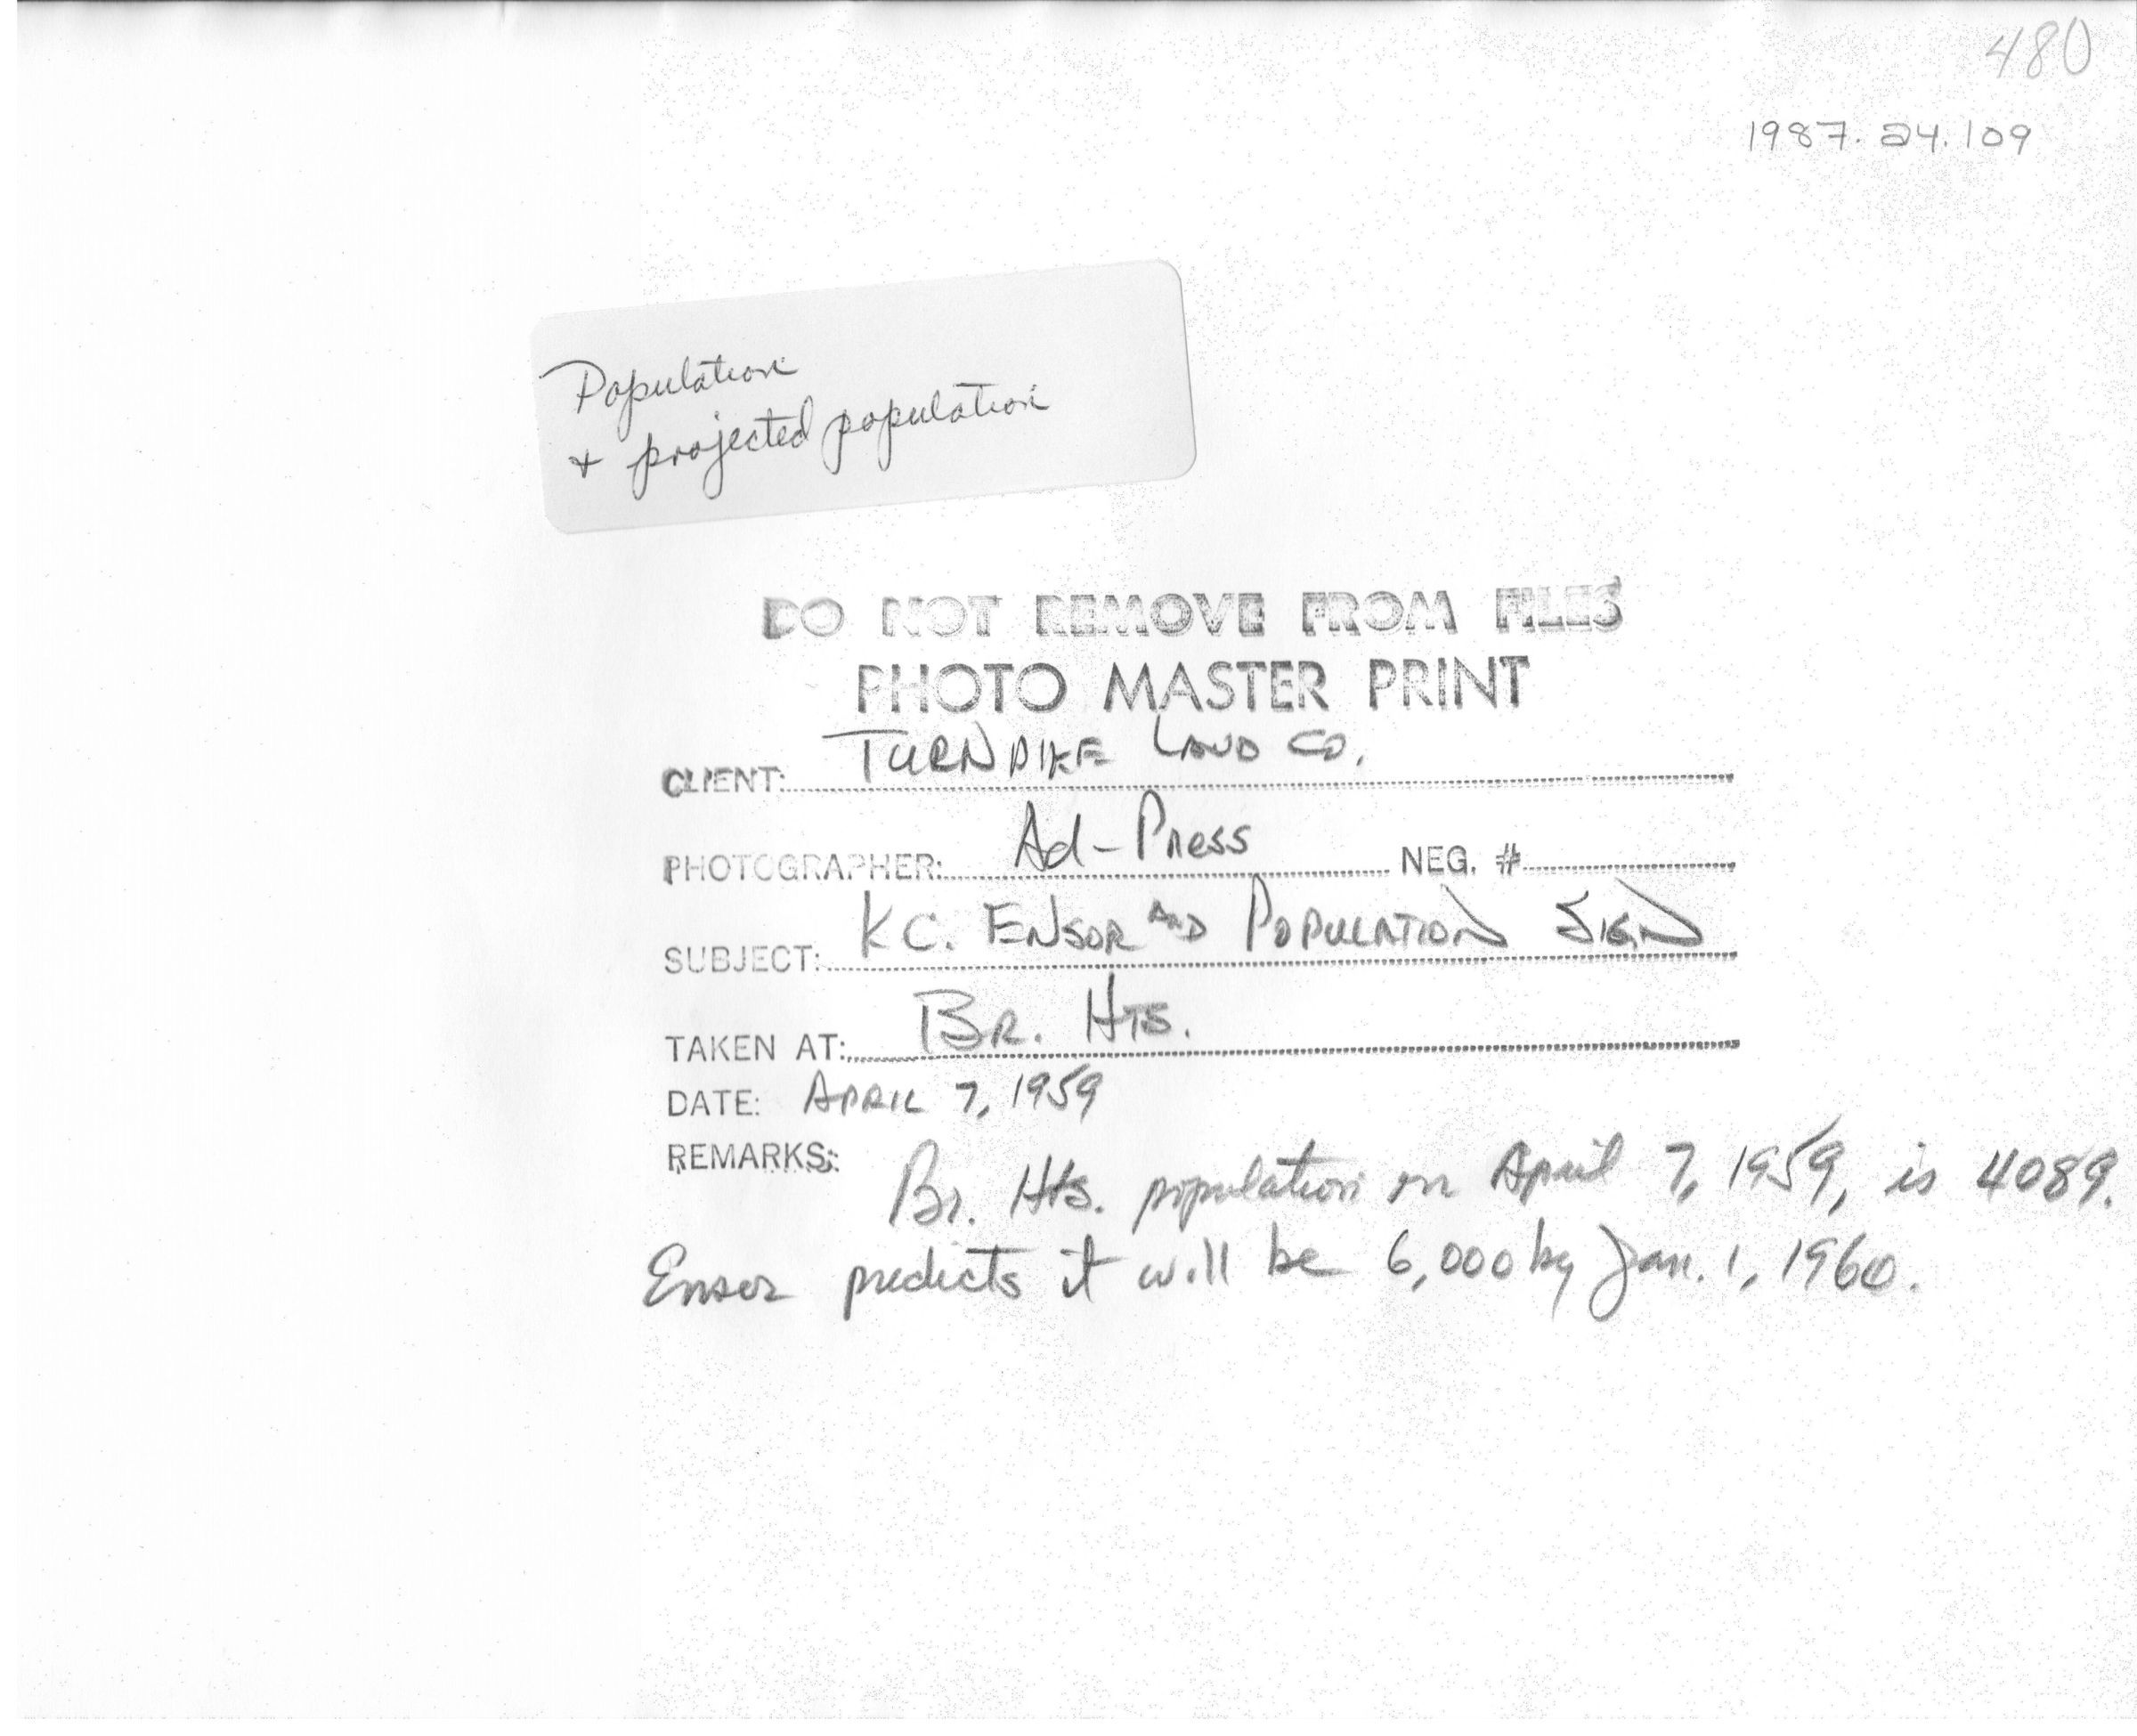 480
1987.24.109
Population
+ projected population
DO NOT REMOVE FROM FILES
PHOTO MASTER PRINT
CLIENT: TURNPIKE LAND CO.
PHOTOGRAPHER: Ad-Press NEG. #
SUBJECT: KC. ENSOR AND POPULATION SIGN
TAKEN AT: BR. HTS.
DATE: APRIL 7, 1959
REMARKS: Br. Hts. population on April 7, 1959, is 4089.
Ensor predicts it will be 6,000 by Jan. 1, 1960.